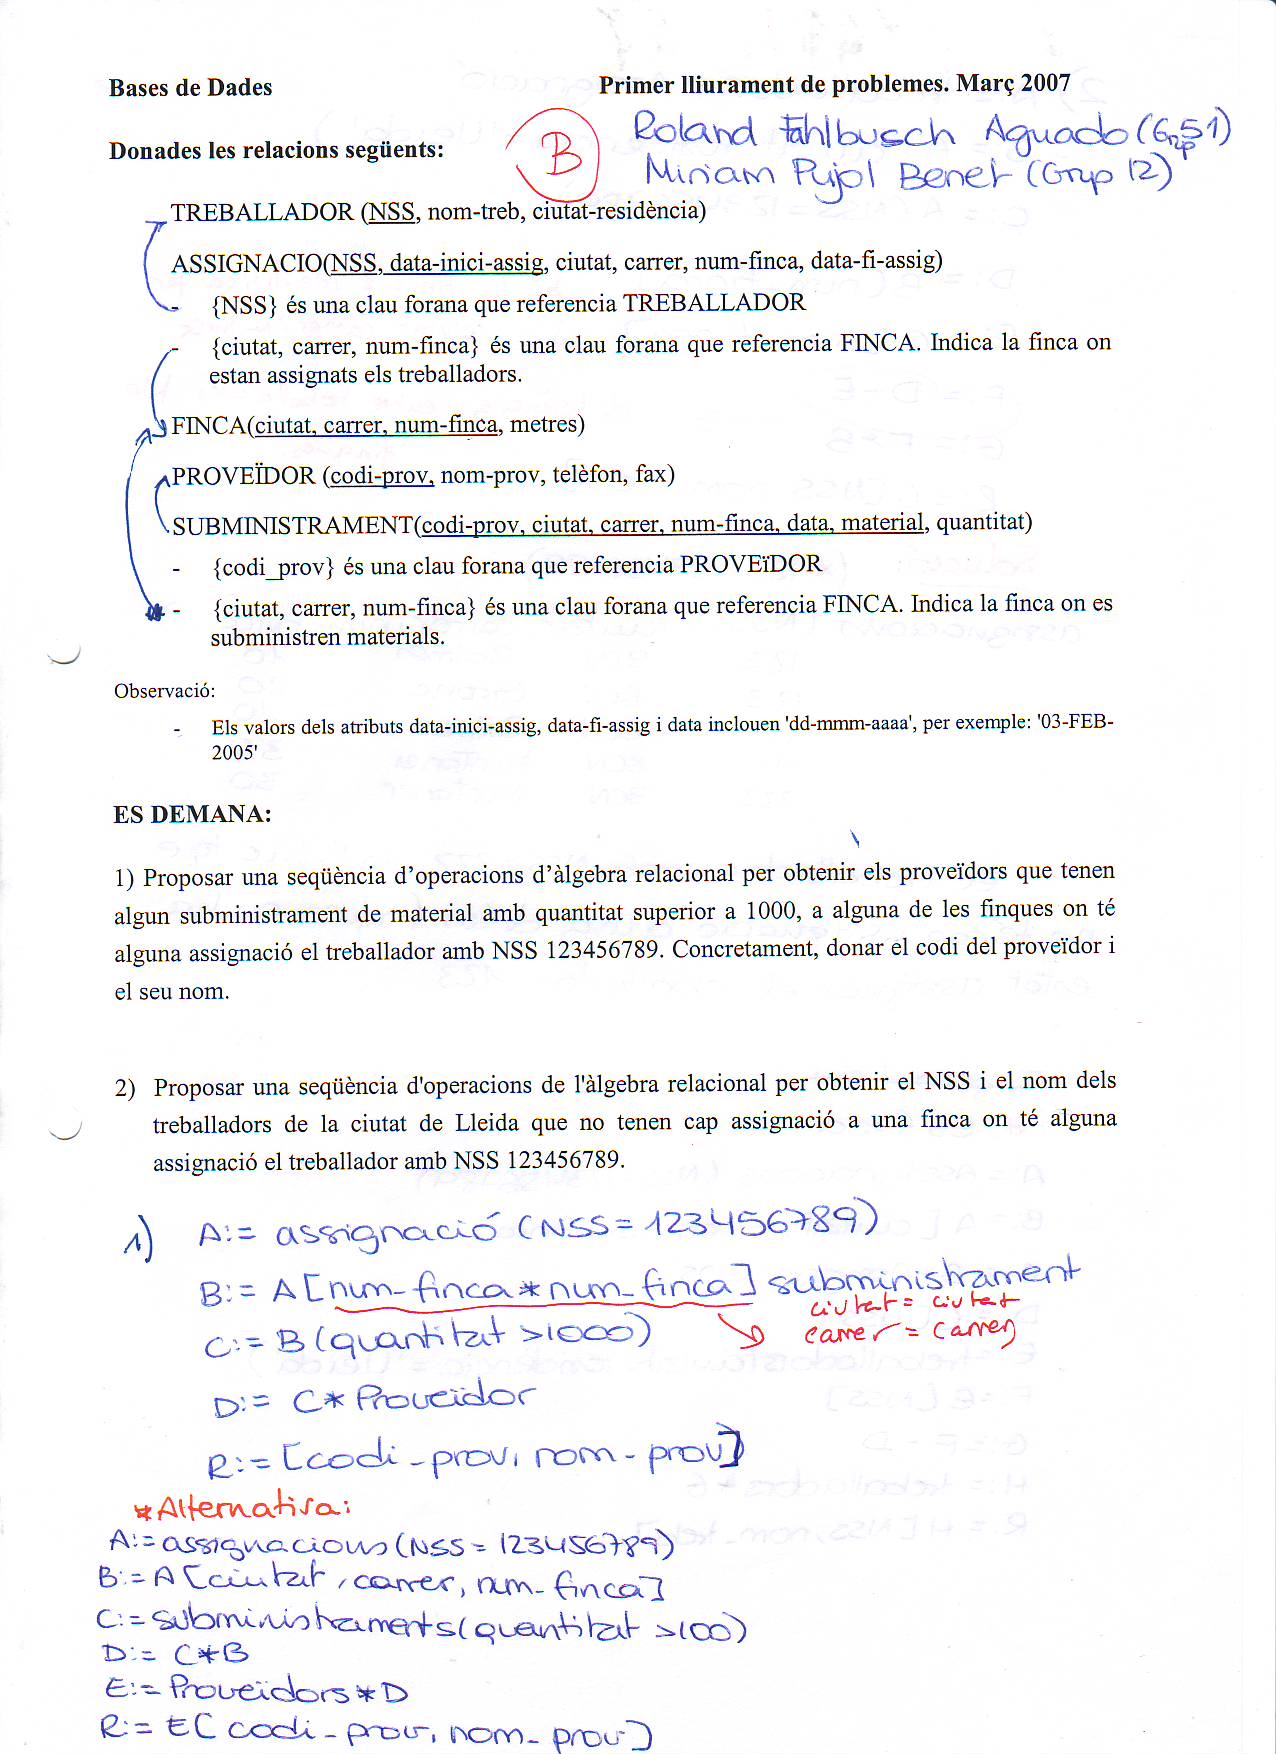 Bases de Dades Primer lliurament de problemes. Març 2007
B
Roland Fahlbusch Aguado (Grup 51)
Miriam Pujol Benet (Grup 12)
Donades les relacions següents:
TREBALLADOR (NSS, nom-treb, ciutat-residència)
ASSIGNACIO(NSS, data-inici-assig, ciutat, carrer, num-finca, data-fi-assig)
- {NSS} és una clau forana que referencia TREBALLADOR
- {ciutat, carrer, num-finca} és una clau forana que referencia FINCA. Indica la finca on
estan assignats els treballadors.
FINCA(ciutat, carrer, num-finca, metres)
PROVEÏDOR (codi-prov, nom-prov, telèfon, fax)
SUBMINISTRAMENT(codi-prov, ciutat, carrer, num-finca, data, material, quantitat)
- {codi_prov} és una clau forana que referencia PROVEïDOR
- {ciutat, carrer, num-finca} és una clau forana que referencia FINCA. Indica la finca on es
subministren materials.
Observació:
- Els valors dels atributs data-inici-assig, data-fi-assig i data inclouen 'dd-mmm-aaaa', per exemple: '03-FEB-
2005'
ES DEMANA:
1) Proposar una seqüència d'operacions d'àlgebra relacional per obtenir els proveïdors que tenen
algun subministrament de material amb quantitat superior a 1000, a alguna de les finques on té
alguna assignació el treballador amb NSS 123456789. Concretament, donar el codi del proveïdor i
el seu nom.
2) Proposar una seqüència d'operacions de l'àlgebra relacional per obtenir el NSS i el nom dels
treballadors de la ciutat de Lleida que no tenen cap assignació a una finca on té alguna
assignació el treballador amb NSS 123456789.
1) A:= assignació (NSS = 123456789)
B:= A [num-finca * num-finca] subministrament
ciutat = ciutat
C:= B (quantitat >1000) carrer = carrer
D:= C * Proveïdor
R:= [codi-prov, nom-prov]
* Alternativa:
A:= assignacions (NSS = 123456789)
B:= A [ciutat, carrer, num-finca]
C:= subministraments (quantitat >100)
D:= C*B
E:= Proveïdors * D
R:= E[codi-prov, nom-prov]